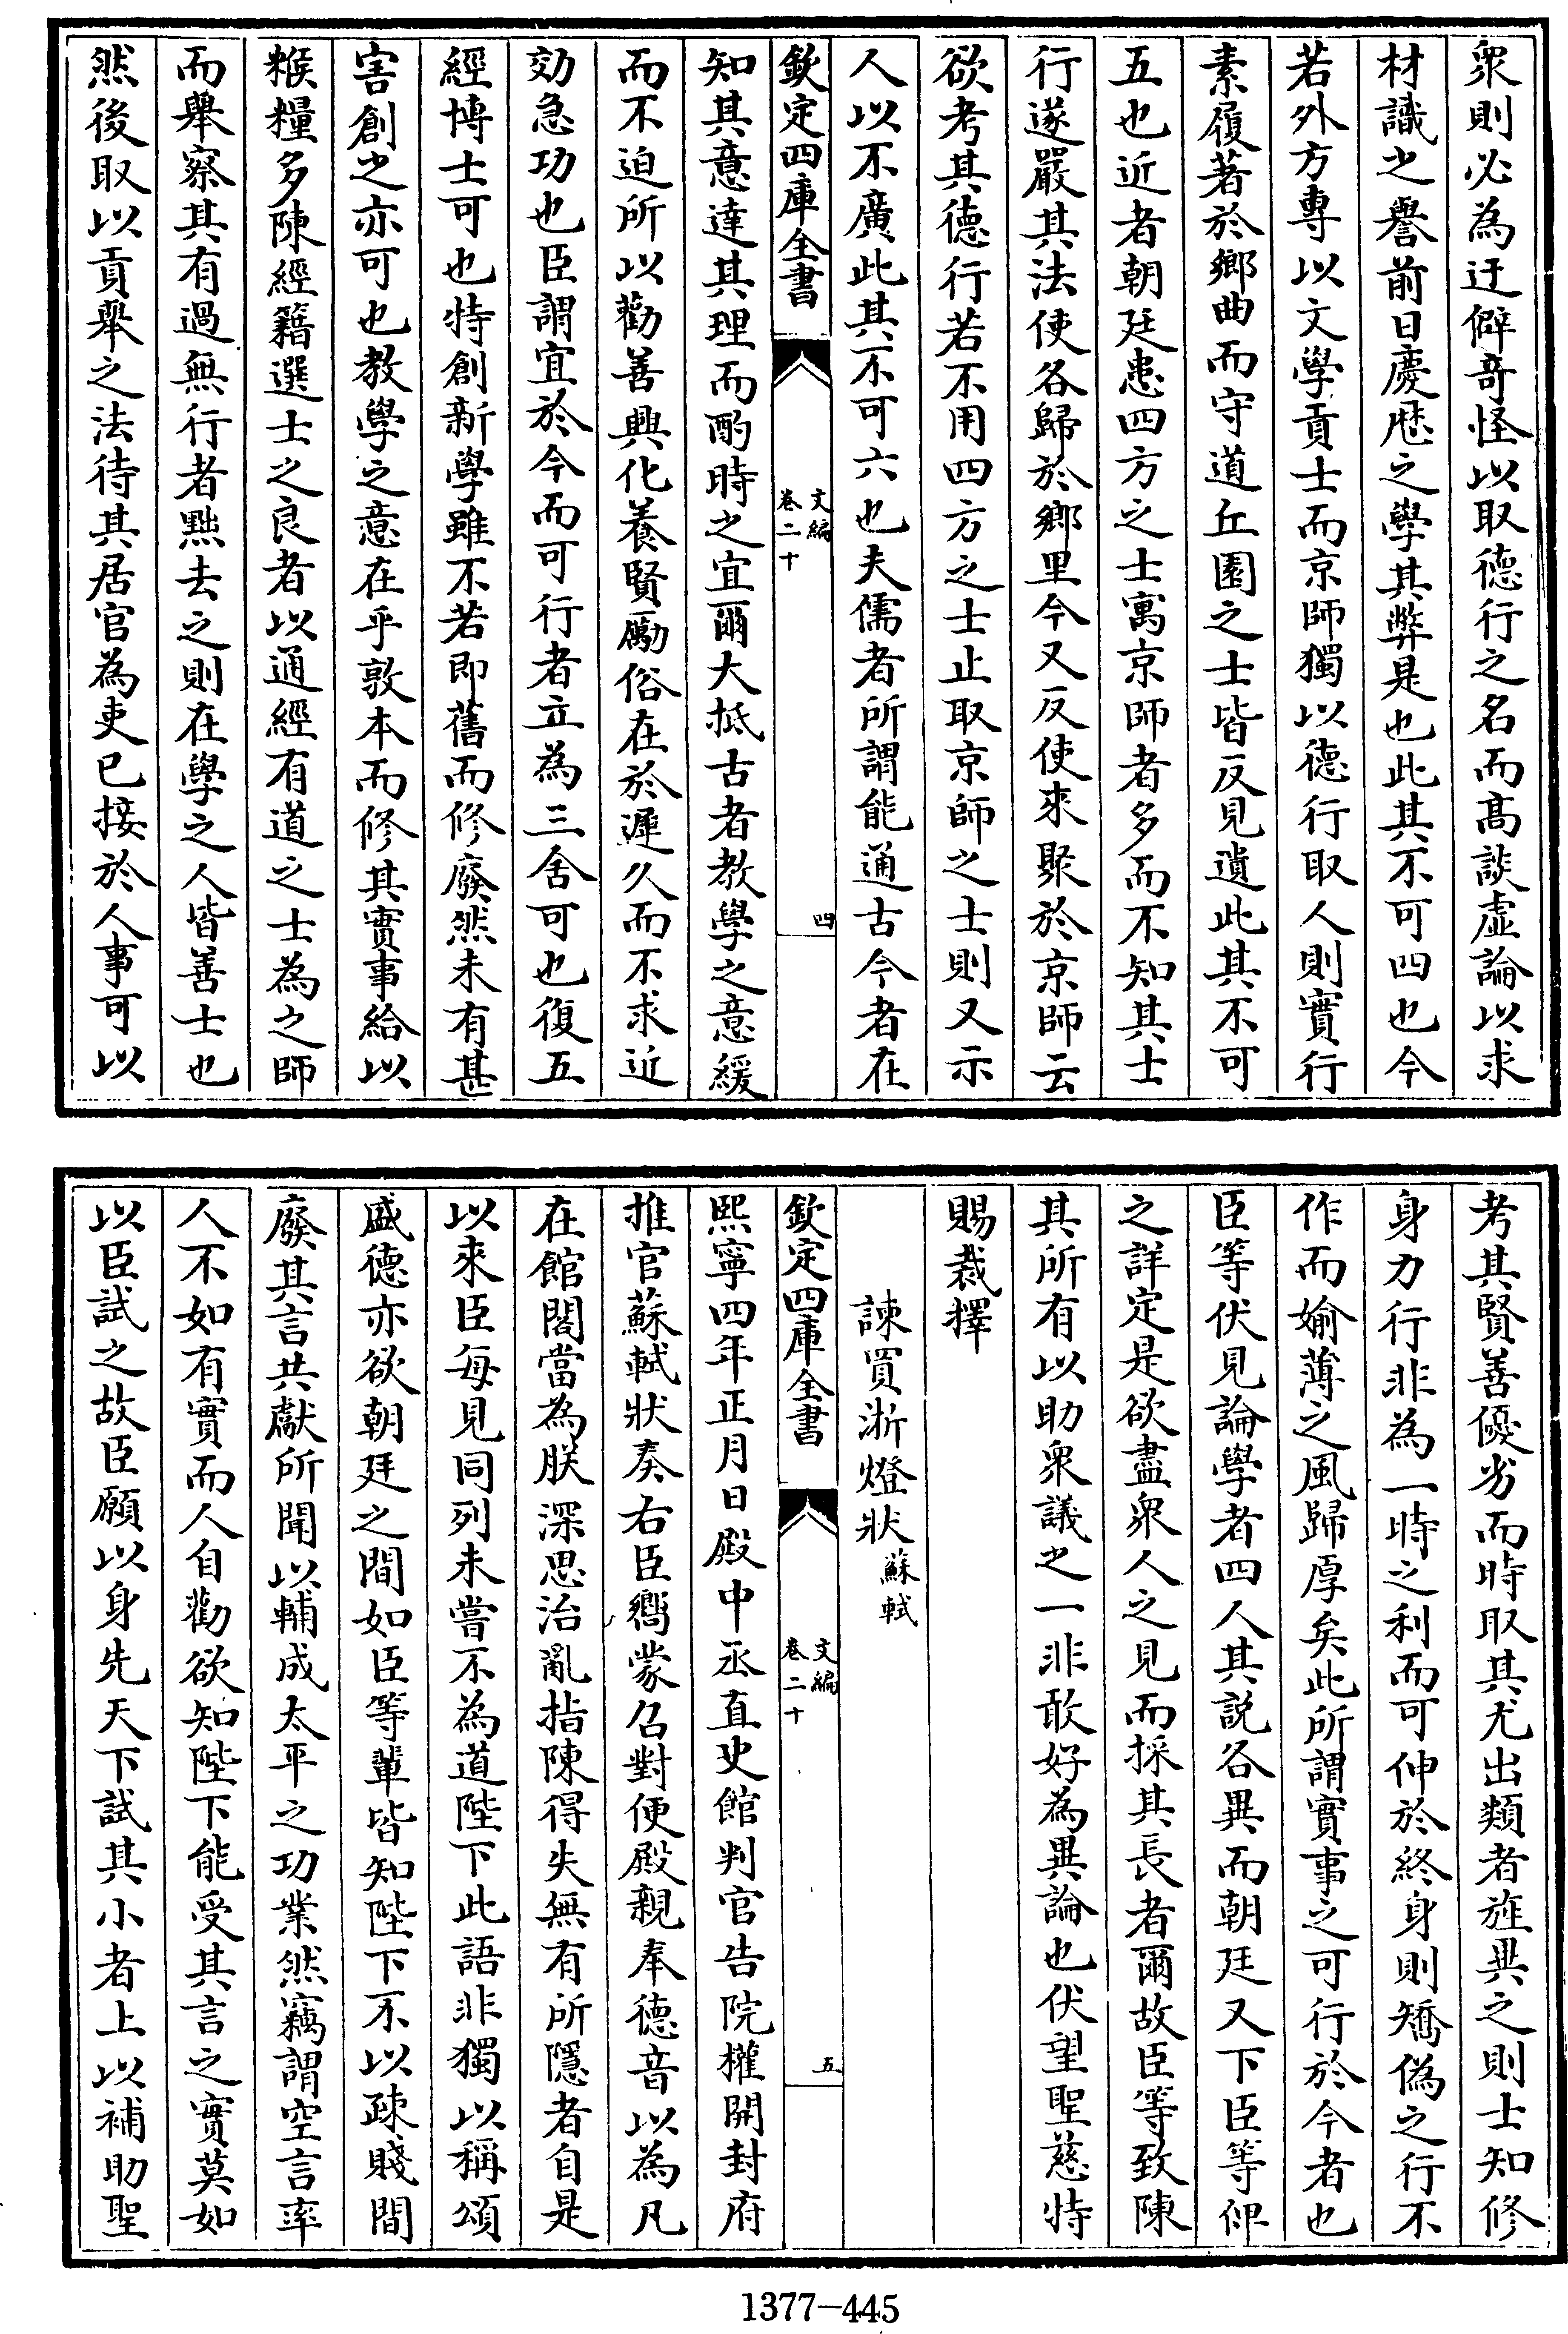 衆則必為迂僻竒怪以取德行之名而髙談虚論以求
材識之譽前日慶厯之學其弊是也此其不可四也今
若外方專以文學貢士而京師獨以德行取人則實行
素履著於鄉曲而守道丘園之士皆反見遺此其不可
五也近者朝廷患四方之士寓京師者多而不知其士
行遂嚴其法使各歸於鄉里今又反使來聚於京師云
欲考其德行若不用四方之士止取京師之士則又示
人以不廣此其不可六也夫儒者所謂能通古今者在
欽定四庫全書
文編
卷二十
四
知其意達其理而酌時之宜爾大抵古者教學之意緩
而不迫所以勸善興化養賢勵俗在於遲久而不求近
効急功也臣謂宜於今而可行者立為三舍可也復五
經博士可也特創新學雖不若即舊而修廢然未有甚
害創之亦可也教學之意在乎敦本而修其實事給以
糇糧多陳經籍選士之良者以通經有道之士為之師
而舉察其有過無行者黜去之則在學之人皆善士也
然後取以貢舉之法待其居官為吏已接於人事可以
考其賢善優劣而時取其尤出類者旌異之則士知修
身力行非為一時之利而可伸於終身則矯偽之行不
作而媮薄之風歸厚矣此所謂實事之可行於今者也
臣等伏見論學者四人其説各異而朝廷又下臣等俾
之詳定是欲盡衆人之見而採其長者爾故臣等致陳
其所有以助衆議之一非敢好為異論也伏望聖慈特
賜裁擇
諫買浙燈狀蘇軾
欽定四庫全書
文編
卷二十
五
熙寧四年正月日殿中丞直史館判官告院權開封府
推官蘇軾狀奏右臣嚮蒙召對便殿親奉德音以為凡
在館閣當為朕深思治亂指陳得失無有所隱者自是
以來臣每見同列未嘗不為道陛下此語非獨以稱頌
盛德亦欲朝廷之間如臣等輩皆知陛下不以疎賤間
廢其言共獻所聞以輔成太平之功業然竊謂空言率
人不如有實而人自勸欲知陛下能受其言之實莫如
以臣試之故臣願以身先天下試其小者上以補助聖
1377-445